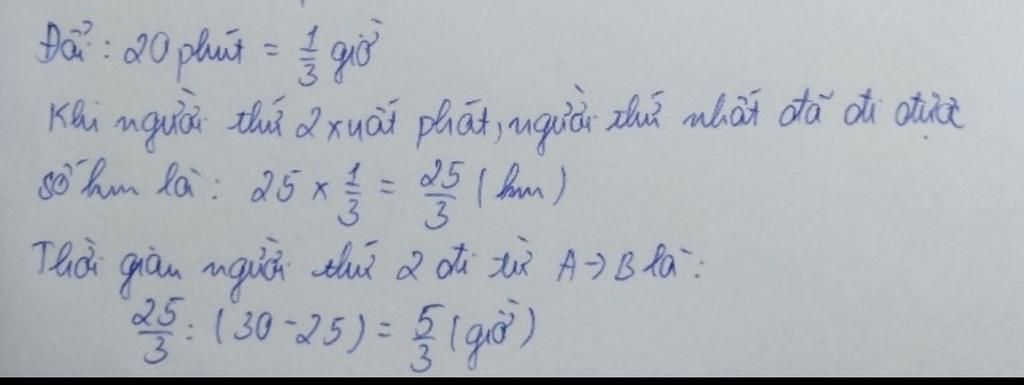 Đổi : 20 phút = 1/3 giờ
Khi người thứ 2 xuất phát, người thứ nhất đã đi được
số km là : 25 × 1/3 = 25/3 (km)
Thời gian người thứ 2 đi từ A → B là :
25/3 : (30 - 25) = 5/3 (giờ)